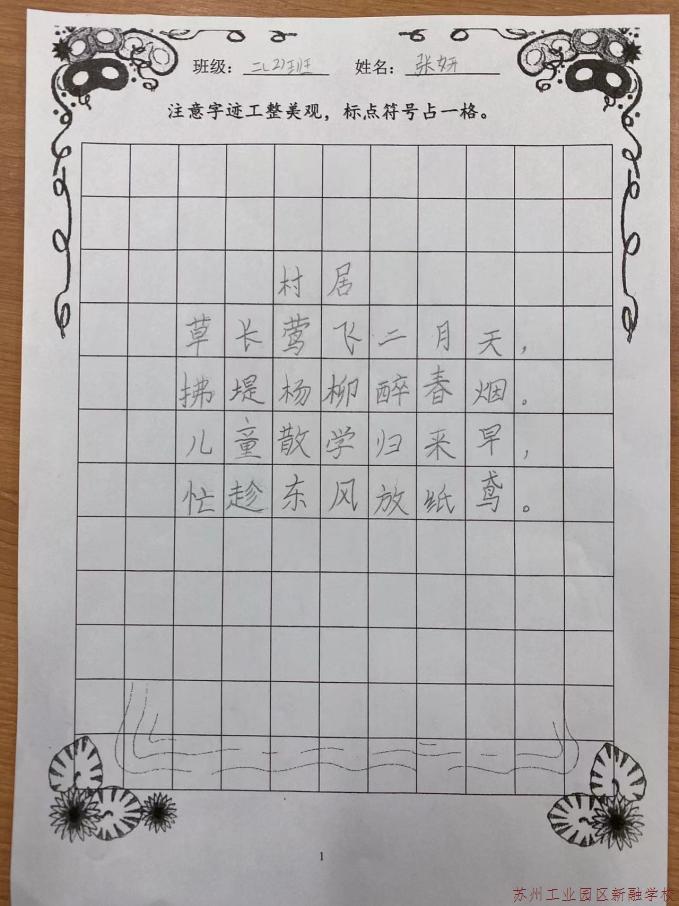 班级：二(2)班 姓名：张妍
注意字迹工整美观，标点符号占一格。
村居
草长莺飞二月天，
拂堤杨柳醉春烟。
儿童散学归来早，
忙趁东风放纸鸢。
1
苏州工业园区新融学校